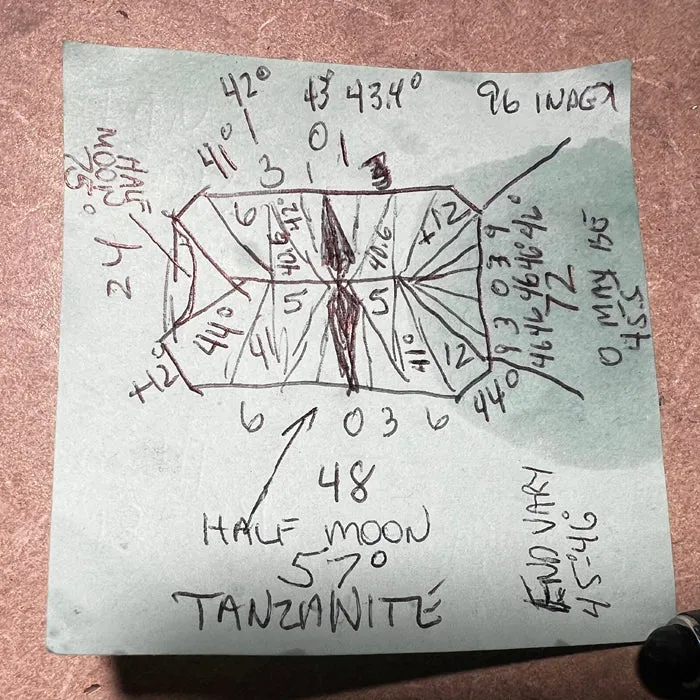 42° 43 43.4° 96 INDEX
1 0 1
41° 3 1
HALF
MOON
75°
24
6 42° +12
40.6 40.6
44° 5 5
4 41° 12
+12°
9 3 0 3 9
46 46 46 46° 46°
72
0 MAY BE
45.5
44°
6 0 3 6
48
HALF MOON
57°
TANZANITE
END VARY
45-46°